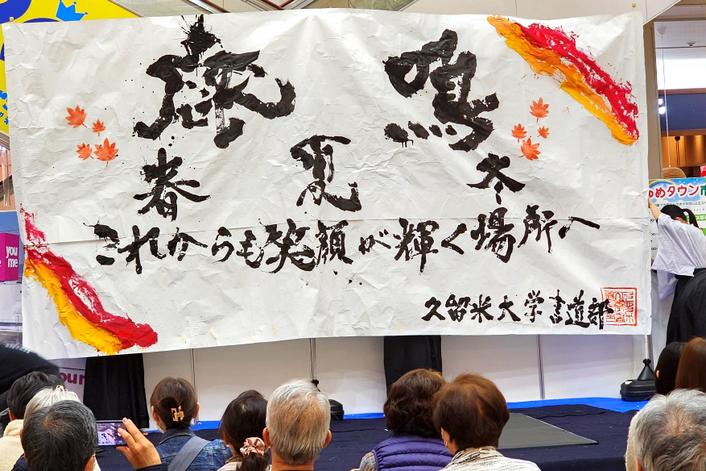 旅 鳴
春 夏 冬
これからも笑顔が輝く場所へ
久留米大学書道部
ゆめタウン
you
me
your